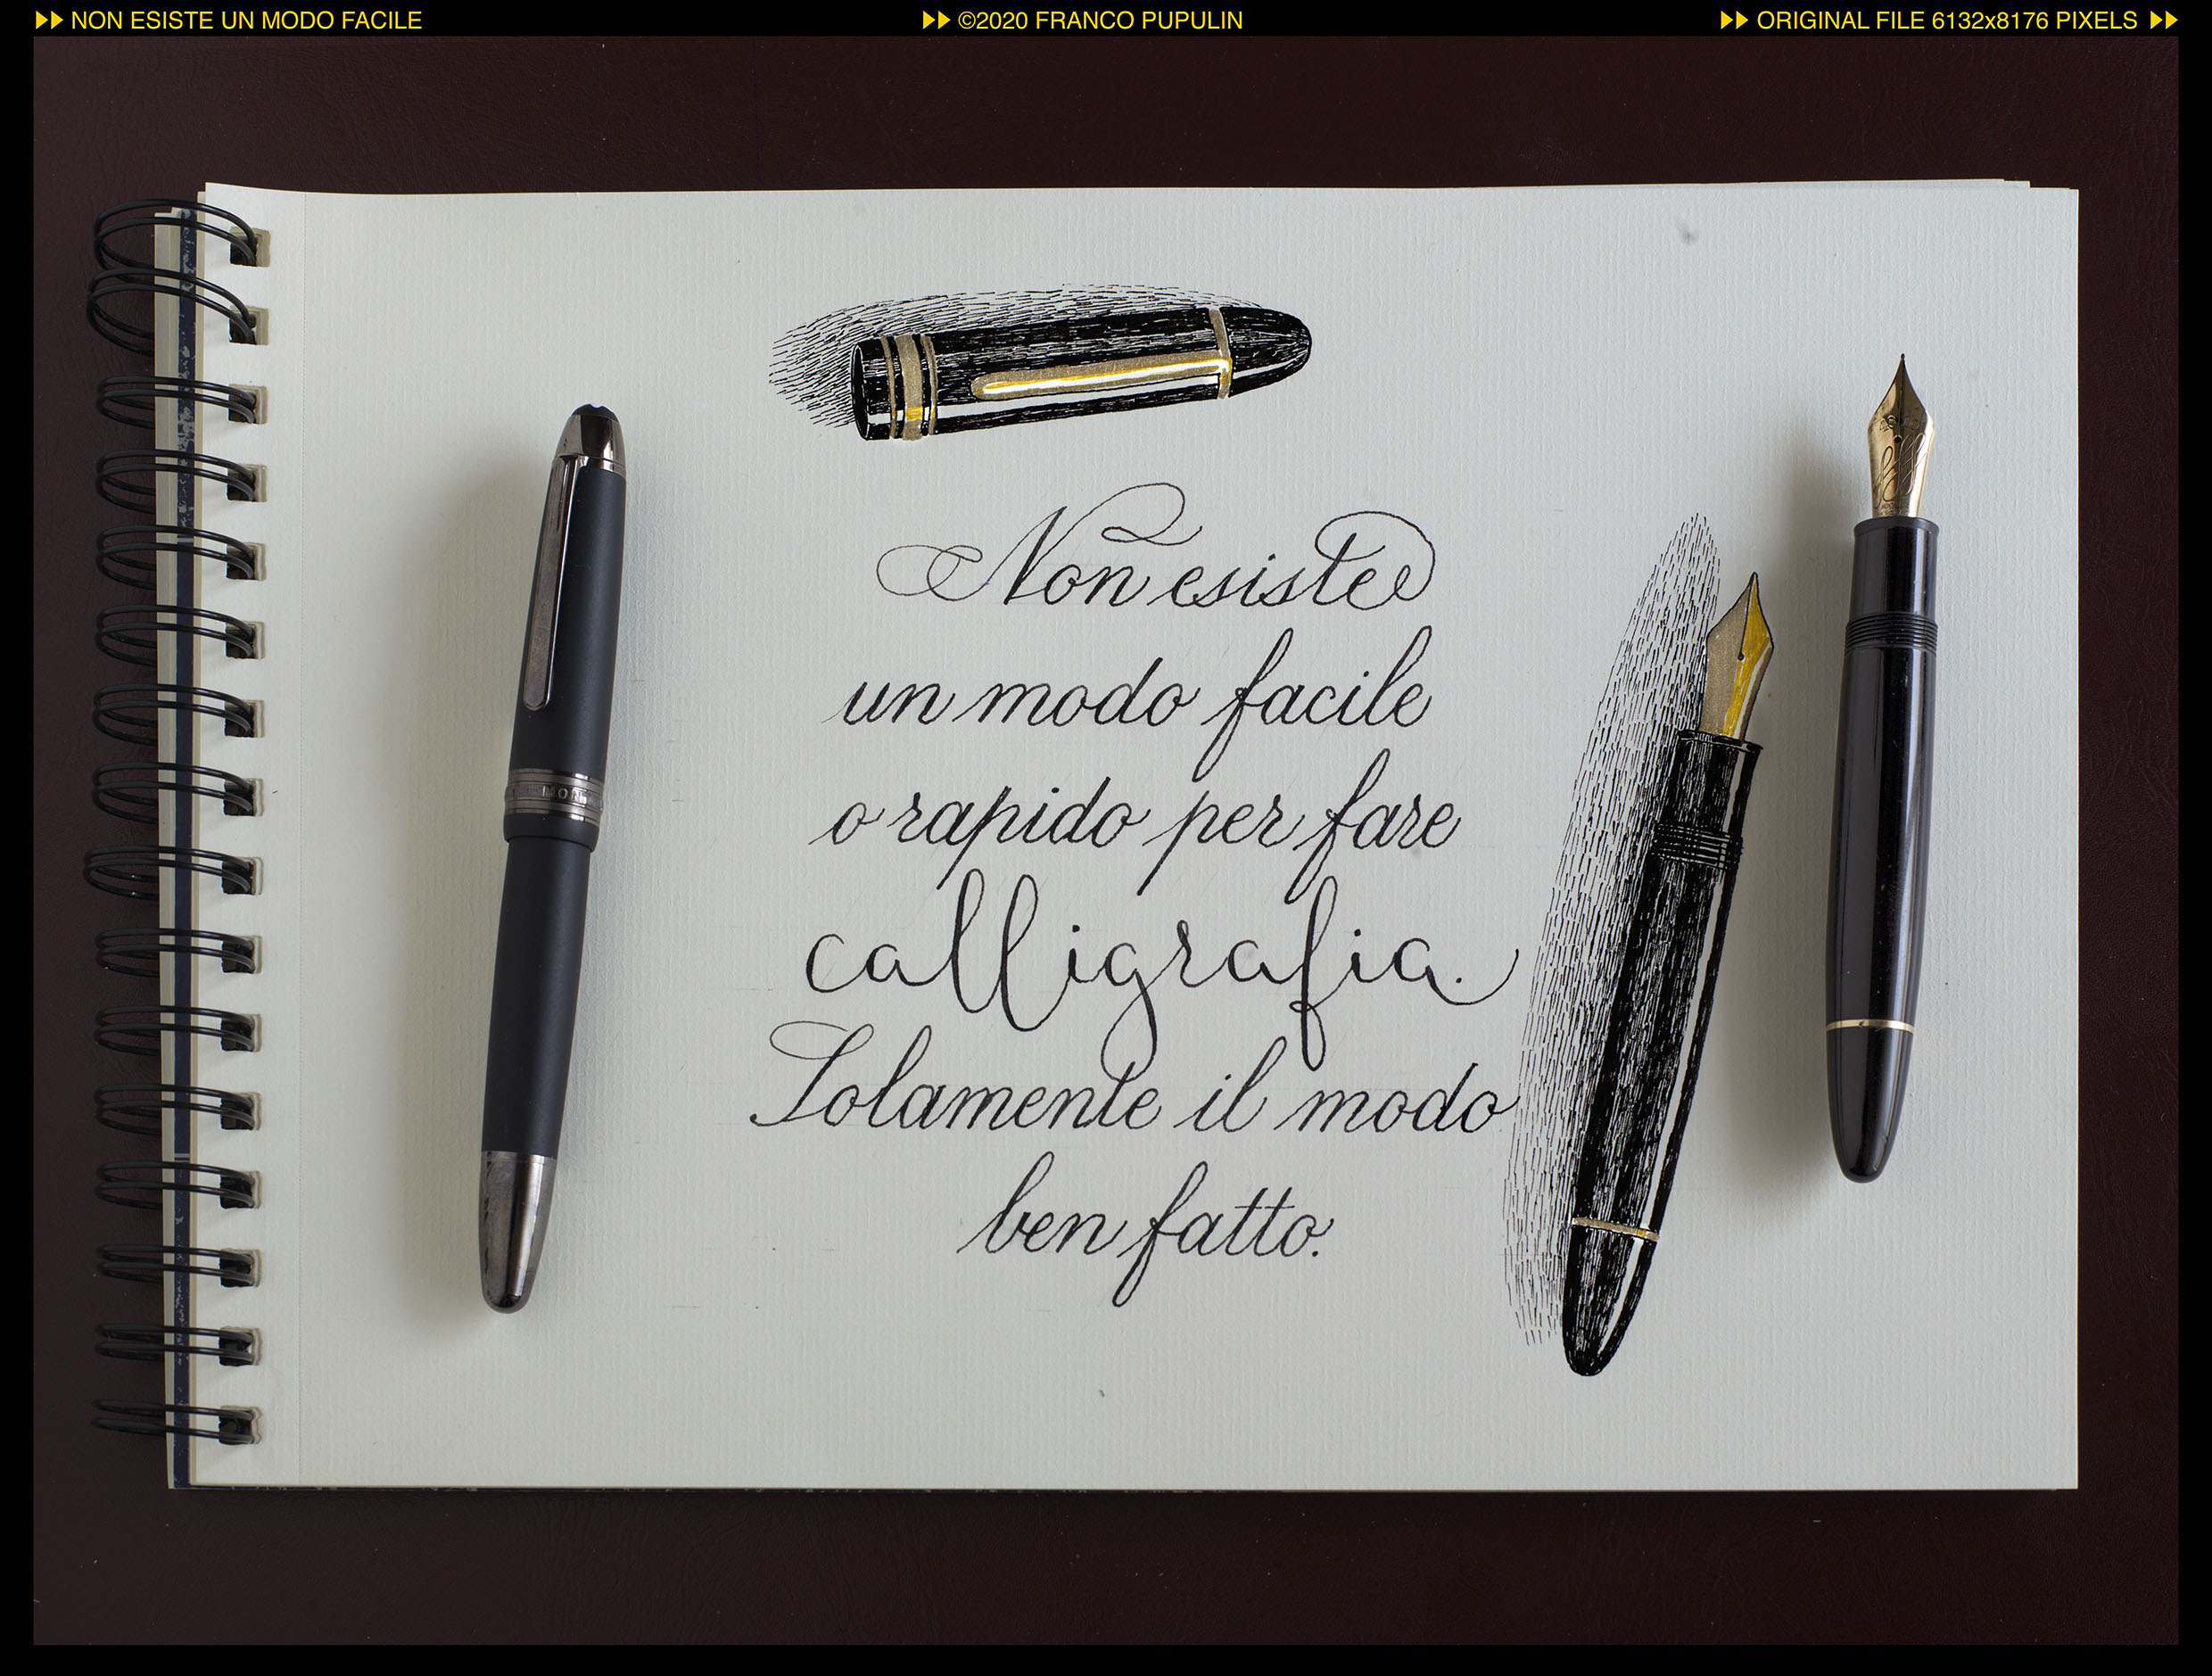 ▶▶ NON ESISTE UN MODO FACILE
▶▶ ©2020 FRANCO PUPULIN
▶▶ ORIGINAL FILE 6132x8176 PIXELS ▶▶
Non esiste
un modo facile
o rapido per fare
calligrafia.
Solamente il modo
ben fatto.